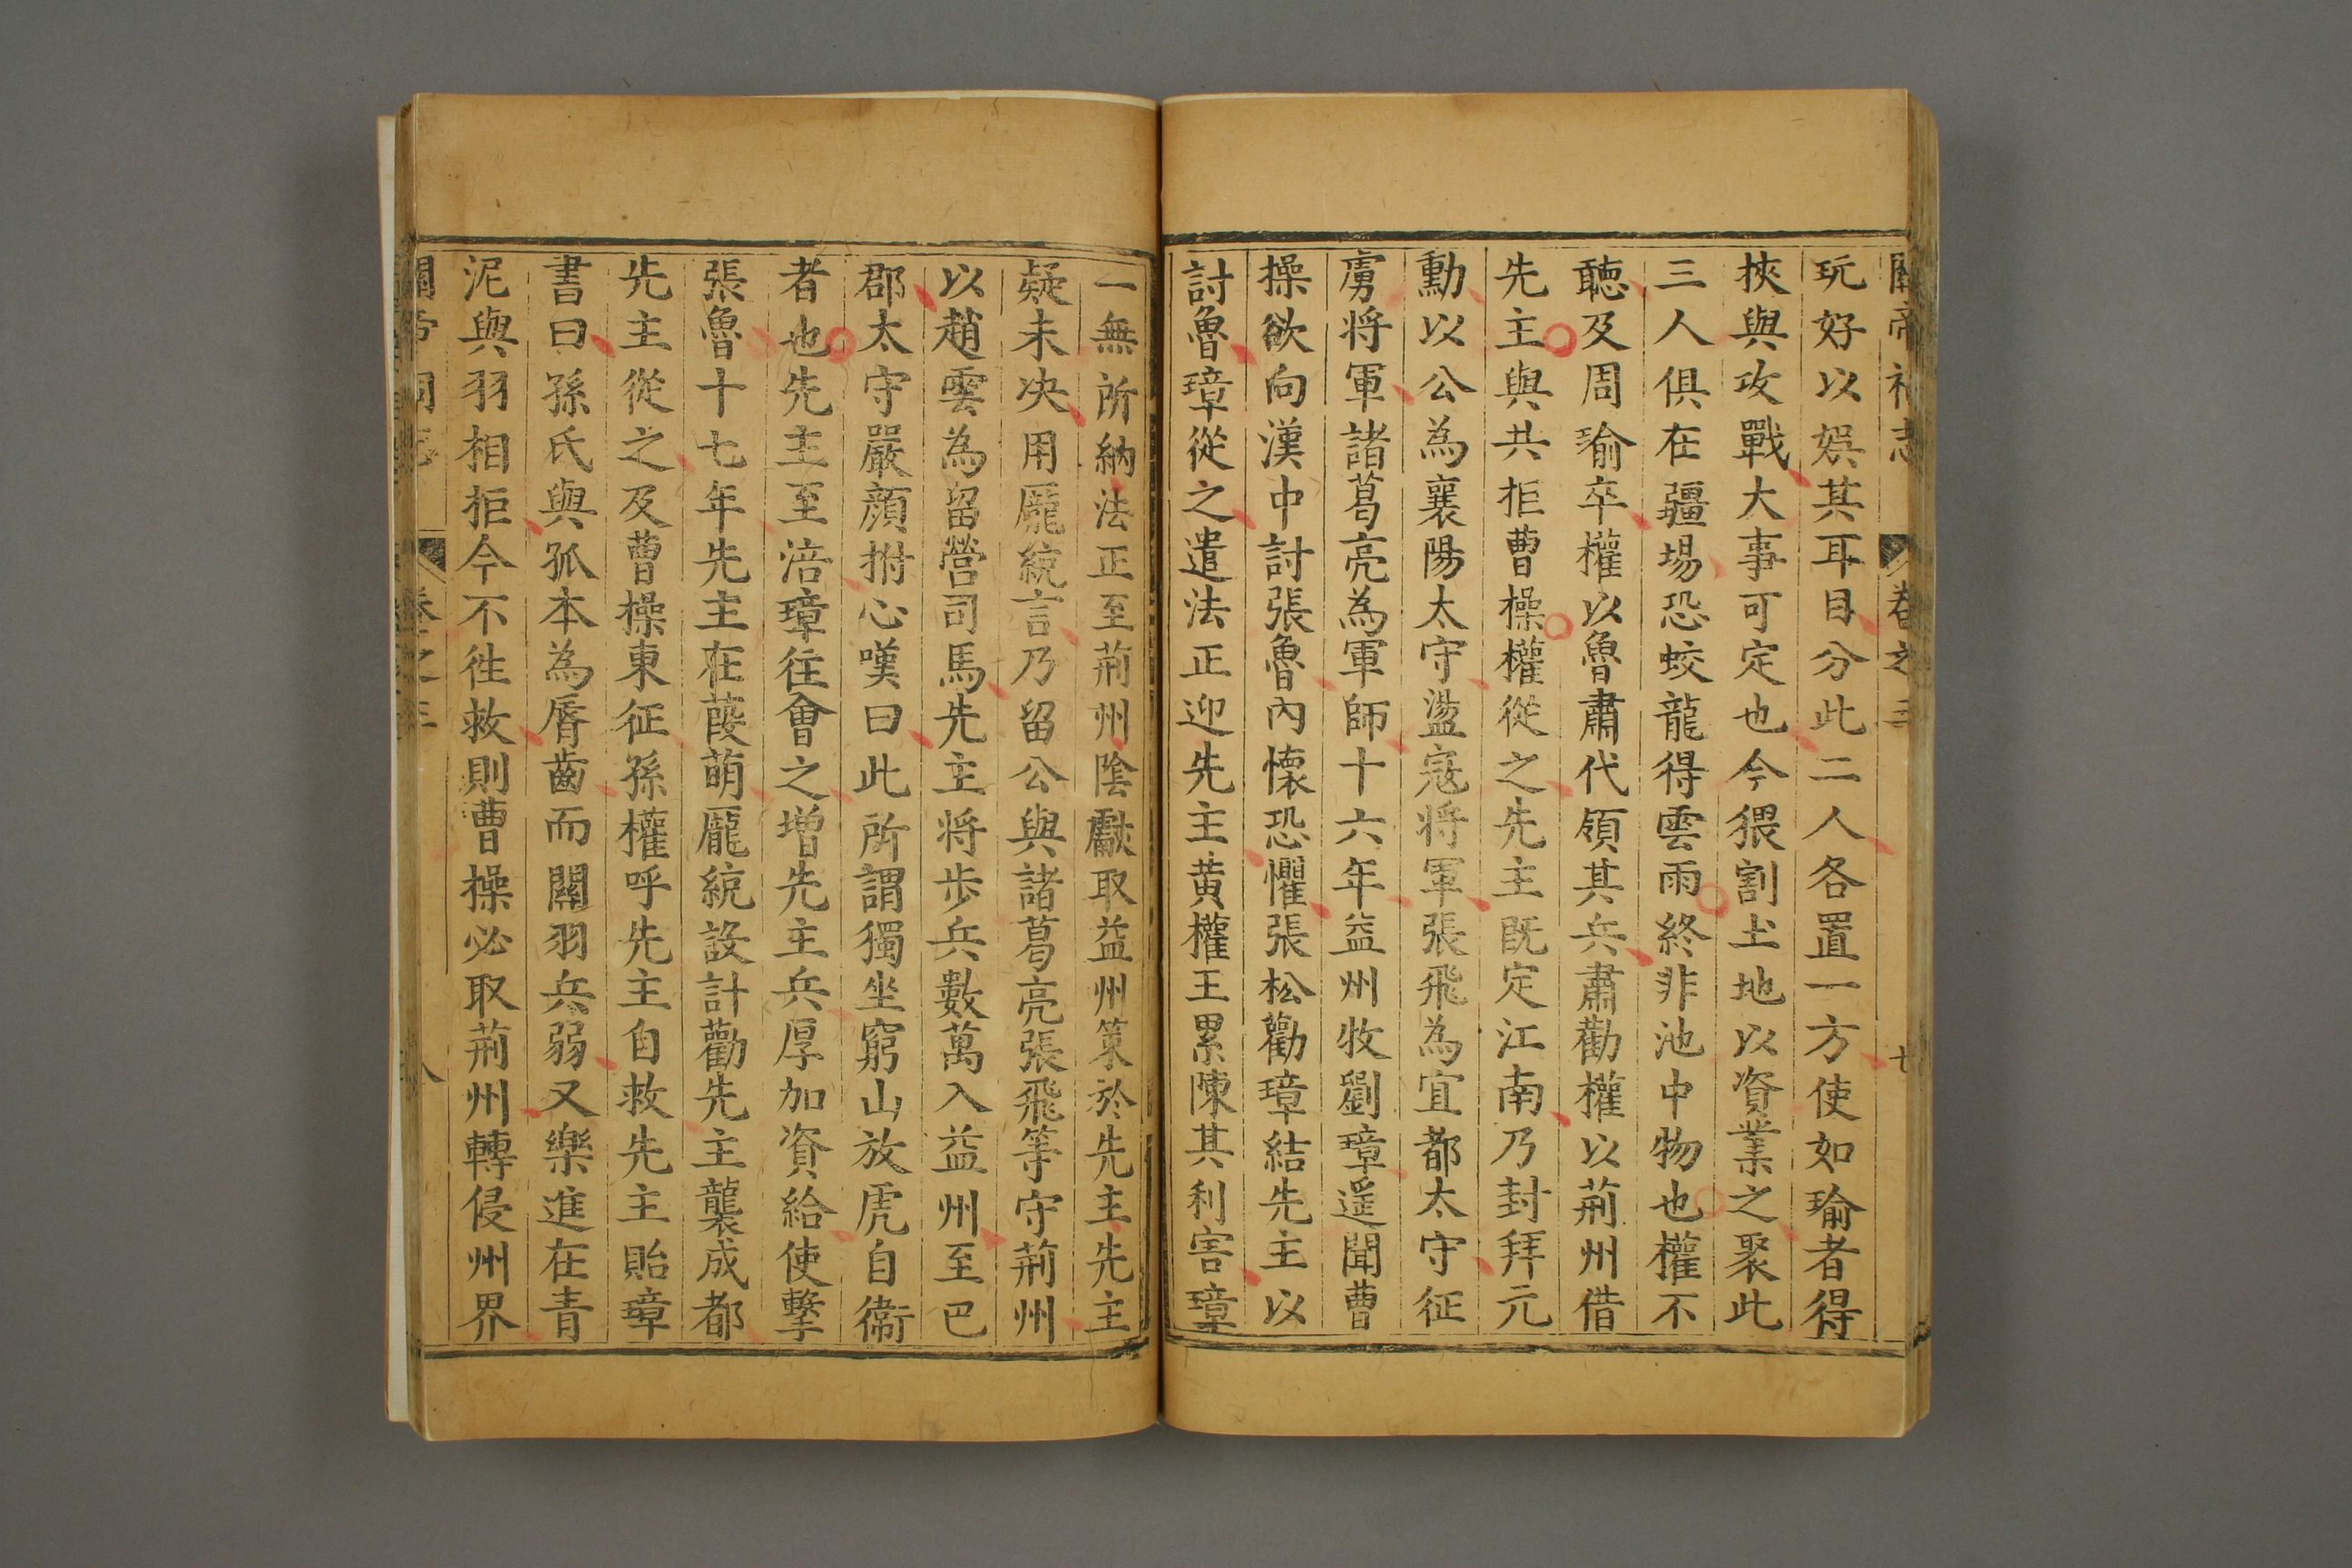 關帝祠志 卷之三 七
玩好以娛其耳目分此二人各置一方使如瑜者得
挾與攻戰大事可定也今猥割土地以資業之聚此
三人俱在疆場恐蛟龍得雲雨終非池中物也權不
聽及周瑜卒權以魯肅代領其兵肅勸權以荊州借
先主與共拒曹操權從之先主既定江南乃封拜元
勳以公為襄陽太守盪寇將軍張飛為宜都太守征
虜將軍諸葛亮為軍師十六年益州牧劉璋遥聞曹
操欲向漢中討張魯內懷恐懼張松勸璋結先主以
討魯璋從之遣法正迎先主黃權王累陳其利害璋
一無所納法正至荊州陰獻取益州策於先主先主
疑未决用龐統言乃留公與諸葛亮張飛等守荊州
以趙雲為留營司馬先主将步兵數萬入益州至巴
郡太守嚴顔拊心嘆曰此所謂獨坐窮山放虎自衛
者也先主至涪璋往會之增先主兵厚加資給使擊
張魯十七年先主在葭萌龐統設計勸先主襲成都
先主從之及曹操東征孫權呼先主自救先主貽璋
書曰孫氏與孤本為脣齒而關羽兵弱又樂進在青
泥與羽相拒今不徃救則曹操必取荊州轉侵州界
關帝祠志 卷之三 八